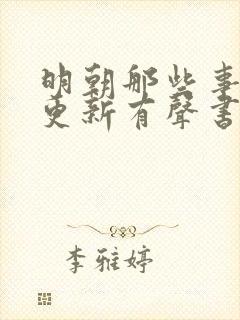 明朝那些事
更新有聲書
李雅婷